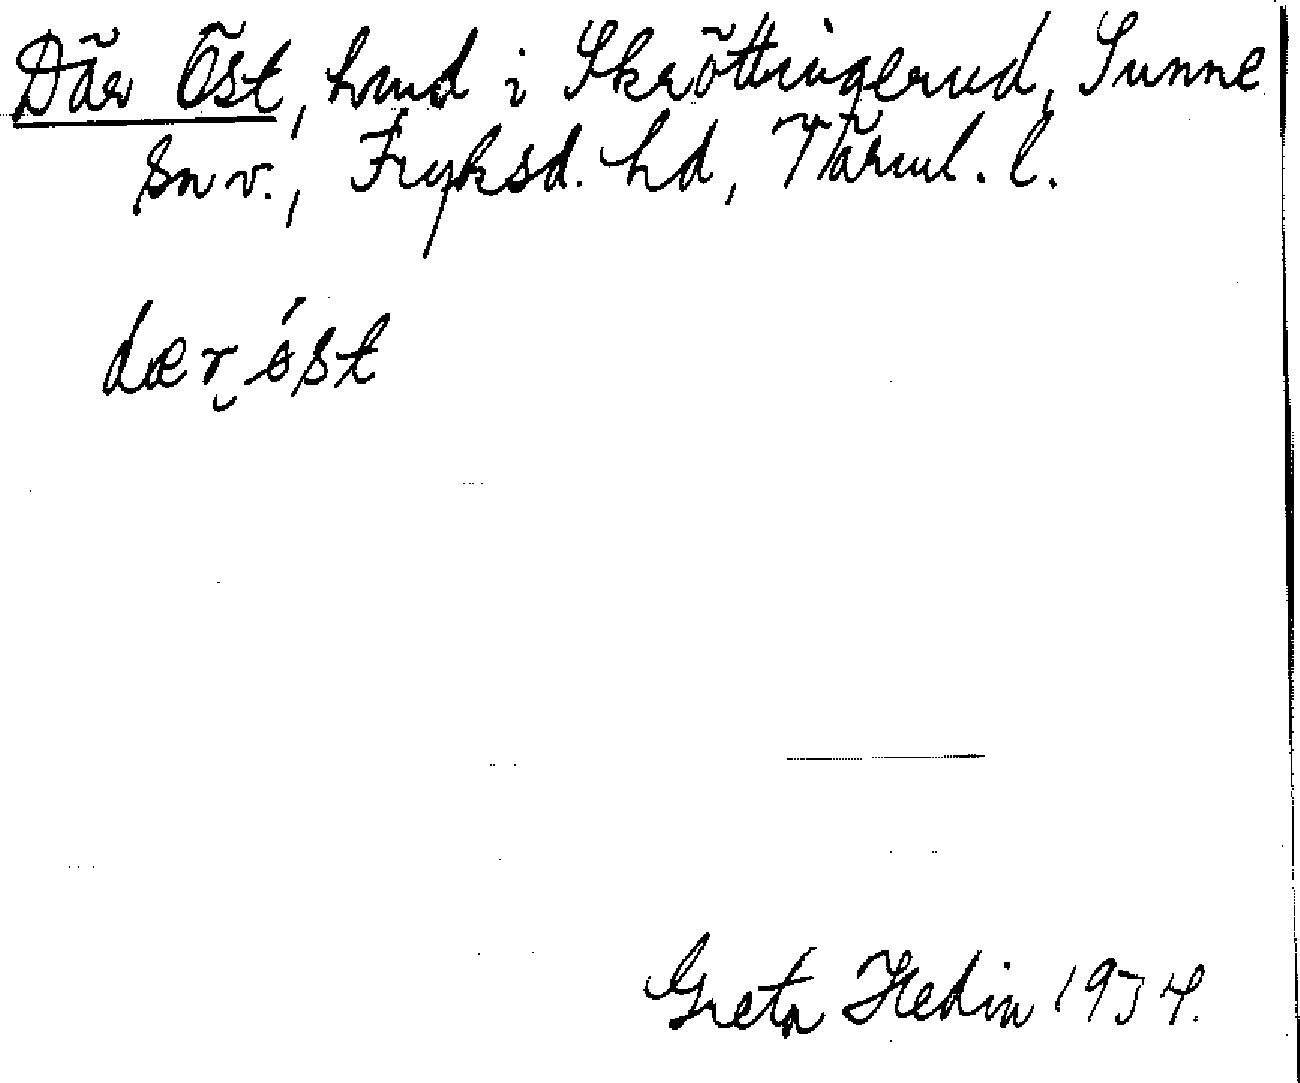 Där Öst, hmd i Skröttingerud, Sunne
sn v., Fryksd. hd, Värml. l.
dær̯ ó̵st
Greta Hedin 1934.